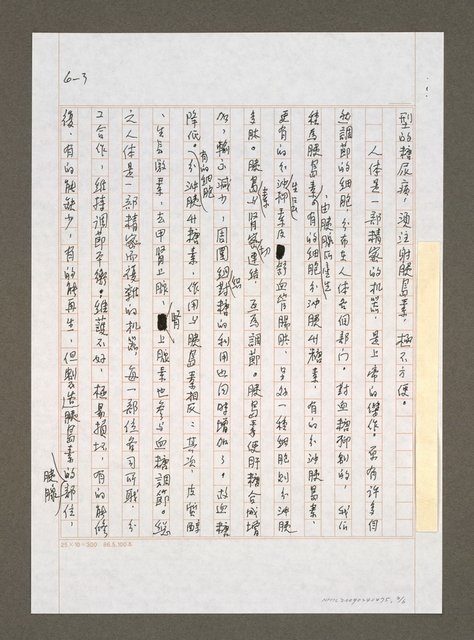 6-3
型的糖尿病，須注射胰島素，極不方便。
人体是一部精密的机器，是上帝的傑作。原有許多自
然調節的細胞，分布在人体各個部门。對血糖抑制的，我们
稱為胰島素。由胰臟所產生，有的細胞分泌胰島素，
更有的分泌抑素及舒血管腸肽，另外一種細胞則分泌胰
多肽。胰島與腎密切連結，互為調節。胰島素使肝糖合成增
加，輸出減少，周圍組織對糖的利用也同時增加了。故血糖
降低。有的細胞分泌胰升糖素，作用與胰島素相反；其次，皮質醇
、生長激素、去甲腎上腺、腎上腺素也參与血糖調節。總
之人体是一部精密而複雜的机器，每一部位各司所職，分
工合作，維持調節平衡。維護不好，極易損坏，有的能修
復，有的能缺少，有的能再生，但製造胰島素的部位，
胰臟
25×10=300 86.5.100本
NMTL20090240475, 3/6